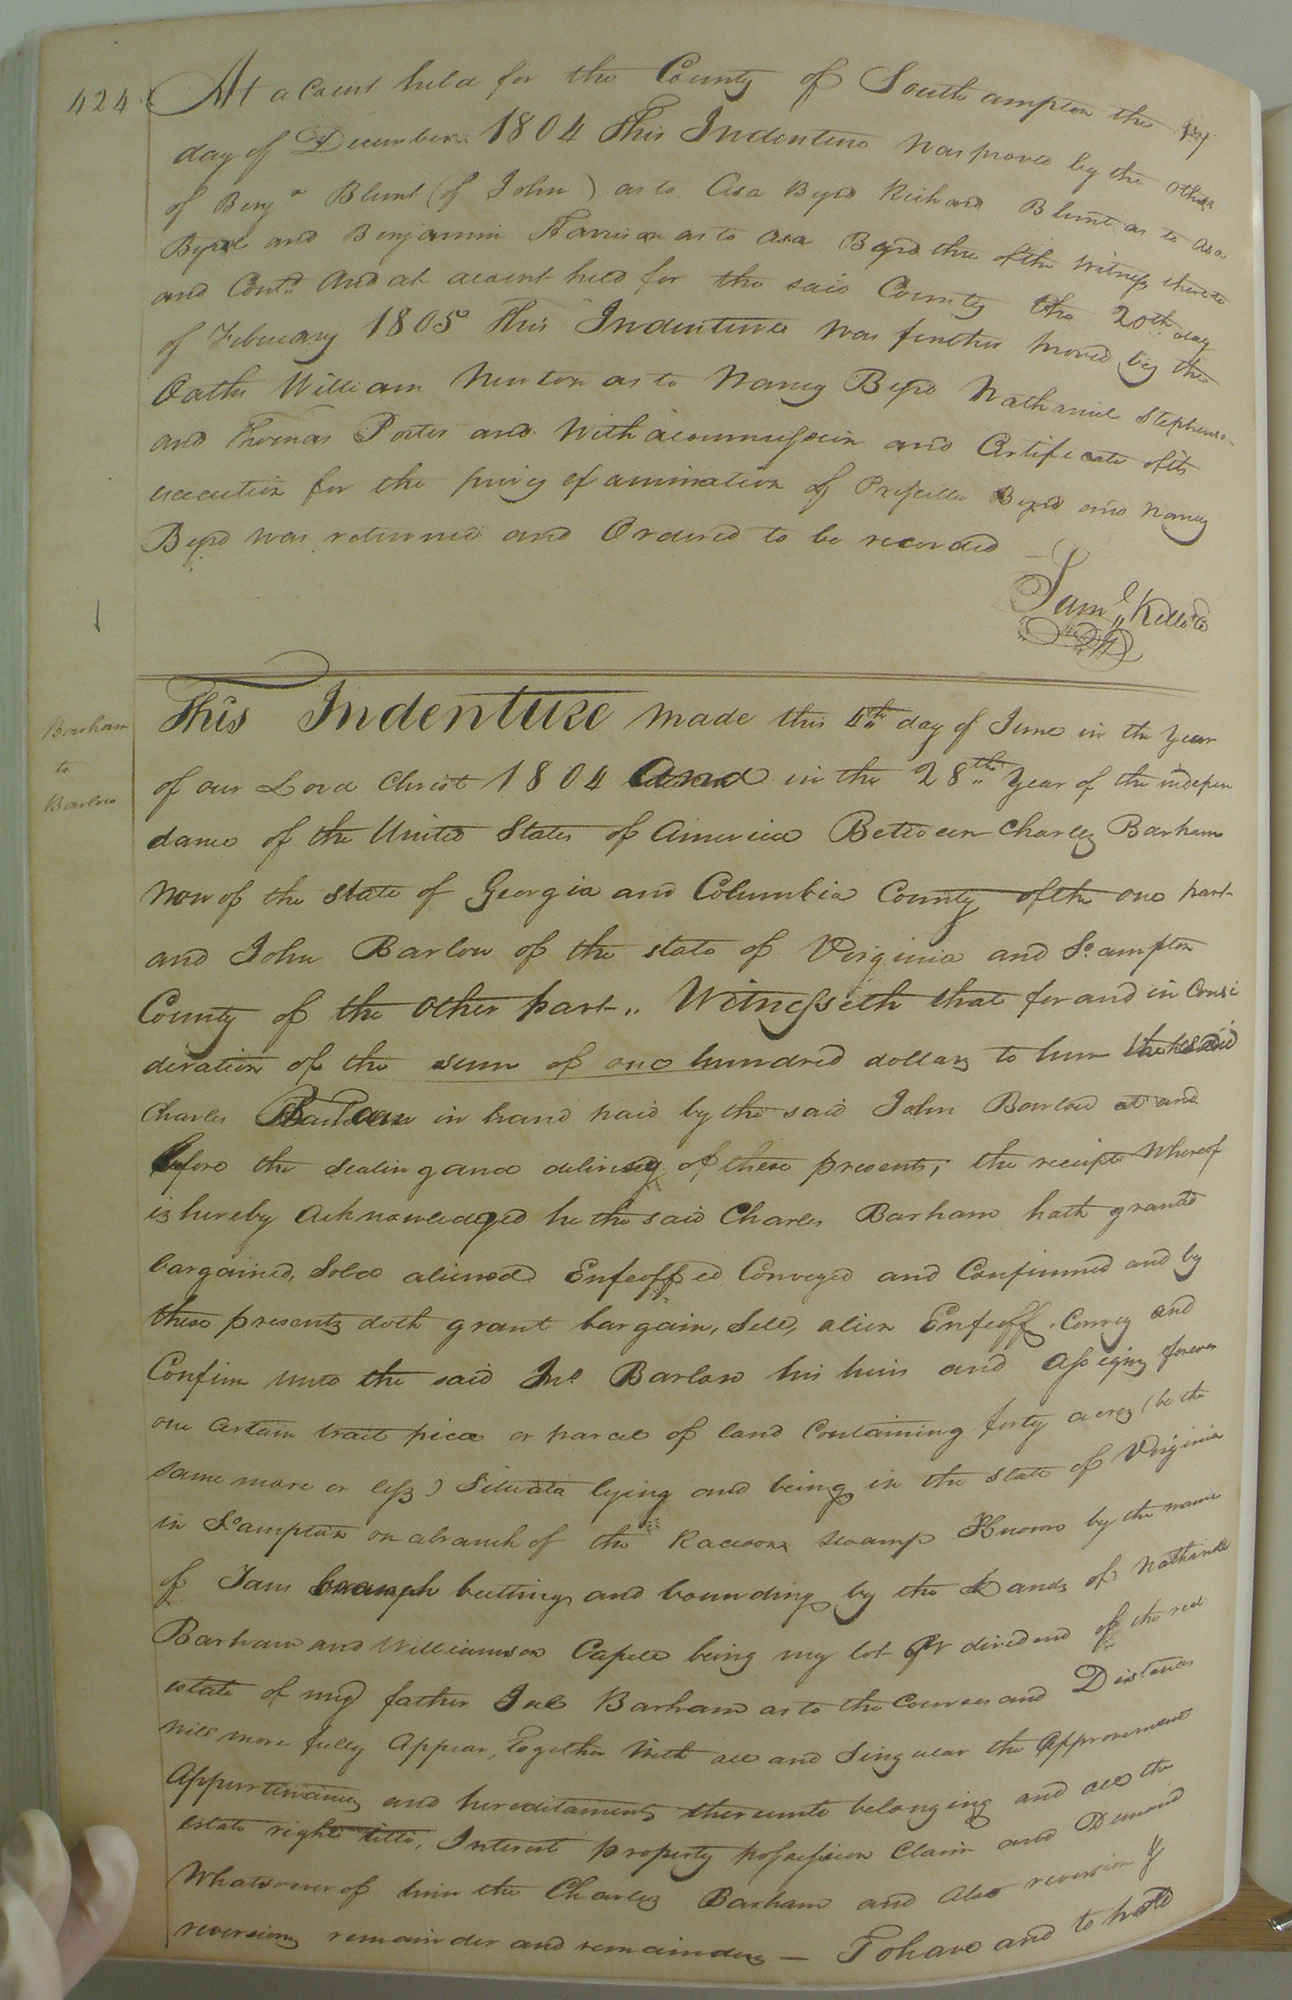 424 At a Court held for the County of Southampton the
day of December 1804 This Indenture was proved by the Oaths
of Benj.a Blunt (of John) as to Asa Byrd Richard Blunt as to Asa
Byrd and Benjamin Harrison as to Asa Byrd three of the Witness thereto
and Cont.d And at a court held for the said County the 20th day
of February 1805 This Indenture was further proved by the
Oaths William Newton as to Nancy Byrd Nathaniel Stephenso-
and Thomas Porter and With a commission and Certificate of its
execution for the privy examination of Priscilla Byrd and Nancy
Byrd was returned and Ordered to be recorded
Sam.l Kello Co
Barham
to
Barlow
This Indenture made this 4th day of June in the year
of our Lord Christ 1804 And in the 28th year of the indepen
dance of the United States of America Between Charles Barham
Now of the state of Georgia and Columbia County of the one part
and John Barlow of the state of Virginia and So.ampton
County of the other part.. Witnesseth that for and in Consi
deration of the sum of one hundred dollars to him the said
Charles Barham in hand paid by the said John Barlow at and
before the sealing and delivery of these presents; the receipt whereof
is hereby Acknowledged he the said Charles Barham hath granted
bargained, Sold aliened Enfeoffed Conveyed and Confirmed and by
these presents doth grant bargain, Sell, alien Enfeoff, Convey and
Confirm unto the said Jno Barlow his heirs and Assigns forever
one certain tract piece or parcel of land Containing forty acres (be the
same more or less) Situate lying and being in the state of Virginia
in So.ampton on a branch of the Racoon swamp Known by the name
of branch butting and bounding by the Lands of Nathaniel
Barham and Williamson Capell being my lot or dividend of the real
estate of my father Jno Barham as to the Courses and Distances
will more fully Appear, Together With all and Singular the Approvement
Appurtenances and hereditaments thereunto belonging and all the
estate right title, Interest property possession Claim and Demand
Whatsoever of him the Charles Barham and Also reversion &
reversions remainder and remainders — To have and to hold